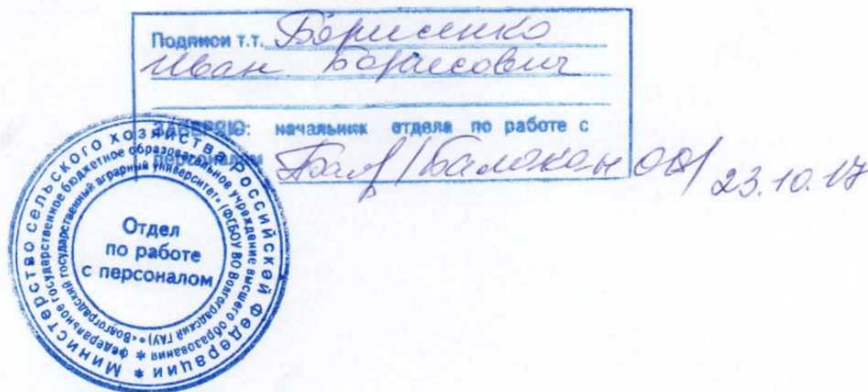 Подписи т.т. Борисенко
Иван Борисович
ЗАВЕРЯЮ: начальник отдела по работе с
персоналом /Балокан ОФ/ 23.10.17
Министерство сельского хозяйства Российской Федерации *
федеральное государственное бюджетное образовательное учреждение высшего образования *
«Волгоградский государственный аграрный университет» (ФГБОУ ВО Волгоградский ГАУ) *
Отдел
по работе
с персоналом